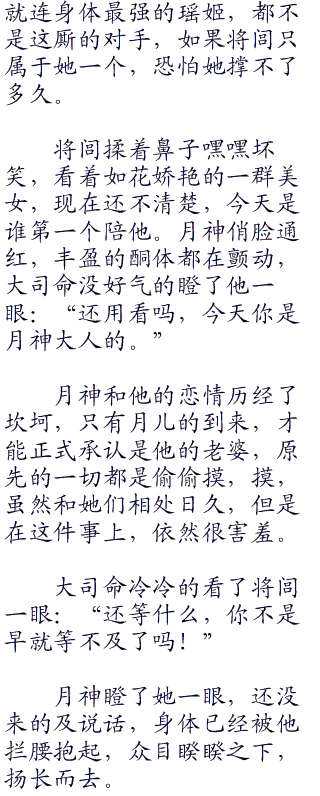 就连身体最强的瑶姬，都不
是这厮的对手，如果将闾只
属于她一个，恐怕她撑不了
多久。
将闾揉着鼻子嘿嘿坏
笑，看着如花娇艳的一群美
女，现在还不清楚，今天是
谁第一个陪他。月神俏脸通
红，丰盈的酮体都在颤动，
大司命没好气的瞪了他一
眼：“还用看吗，今天你是
月神大人的。”
月神和他的恋情历经了
坎坷，只有月儿的到来，才
能正式承认是他的老婆，原
先的一切都是偷偷摸，摸，
虽然和她们相处日久，但是
在这件事上，依然很害羞。
大司命冷冷的看了将闾
一眼：“还等什么，你不是
早就等不及了吗！”
月神瞪了她一眼，还没
来的及说话，身体已经被他
拦腰抱起，众目睽睽之下，
扬长而去。